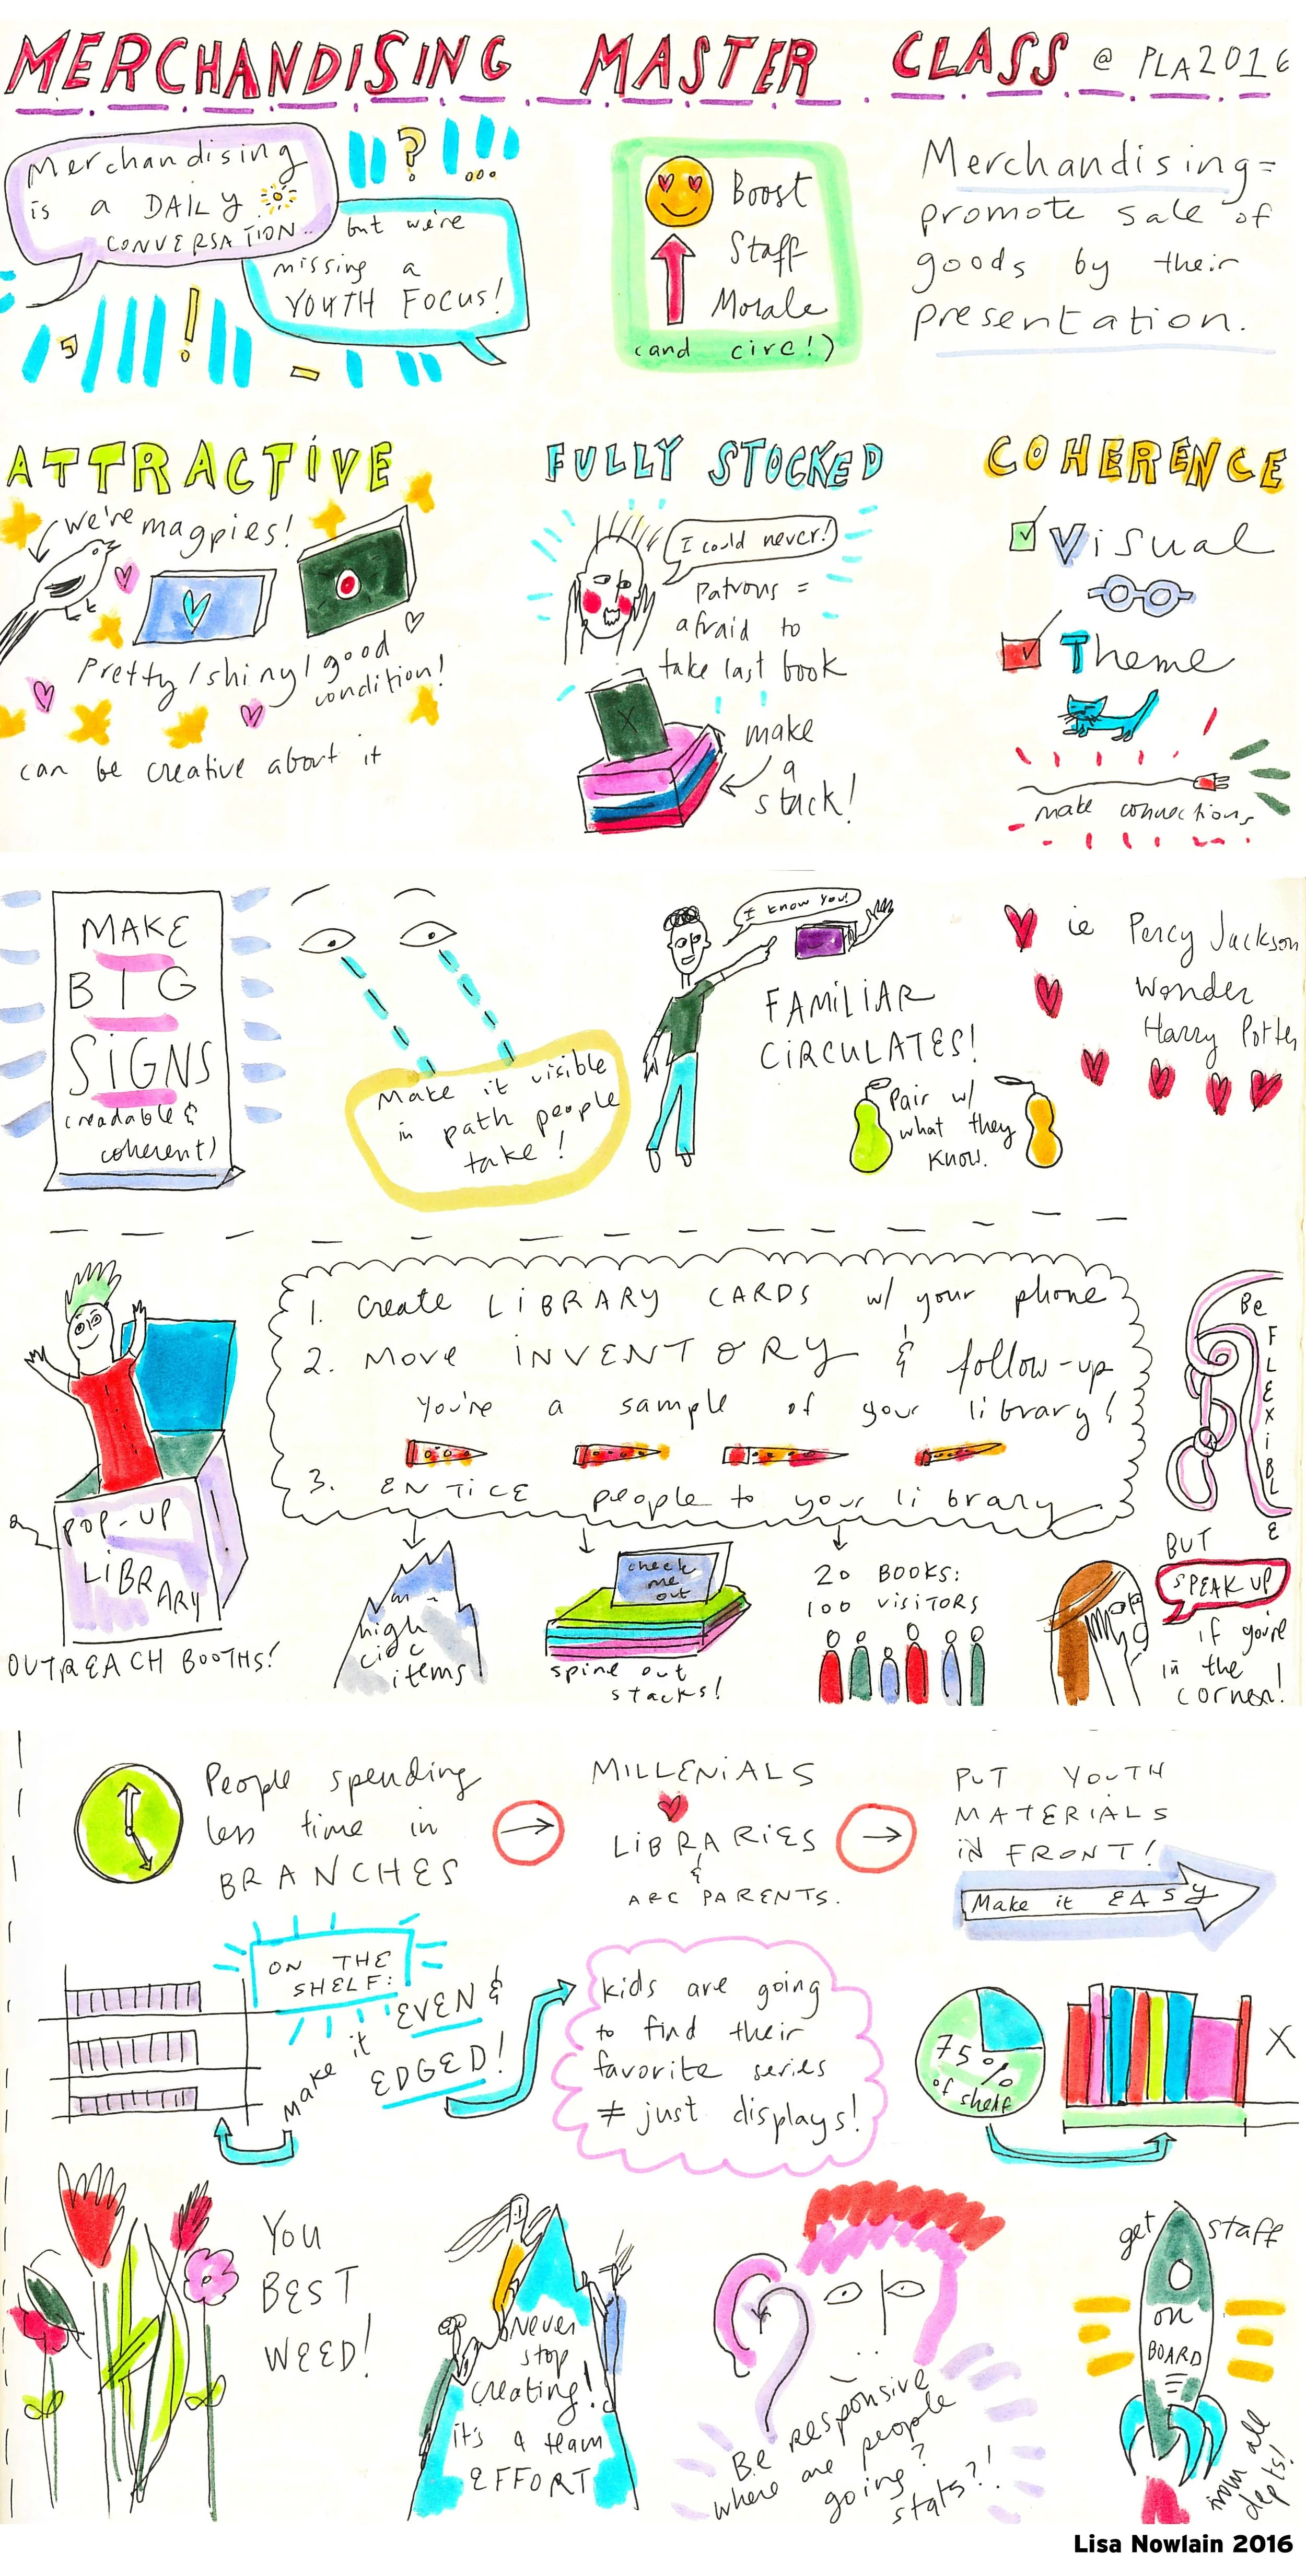 MERCHANDISING MASTER CLASS @ PLA2016
Merchandising
is a DAILY
CONVERSATION..
but we're
missing a
YOUTH FOCUS!
Boost
Staff
Morale
(and circ!)
Merchandising=
promote sale of
goods by their
presentation.
ATTRACTIVE
we're magpies!
Pretty/shiny/good
condition!
can be creative about it
FULLY STOCKED
I could never!
Patrons =
afraid to
take last book
make
a
stack!
COHERENCE
Visual
Theme
make connections
MAKE
BIG
SIGNS
(readable &
coherent)
Make it visible
in path people
take!
I know you!
FAMILIAR
CIRCULATES!
Pair w/
what they
know.
ie Percy Jackson
Wonder
Harry Potter
POP-UP
LIBRARY
OUTREACH BOOTHS!
1. Create LIBRARY CARDS w/ your phone
2. Move INVENTORY & follow-up
You're a sample of your library!
3. ENTICE people to your library
high
circ
items
check
me
out
spine out
stacks!
20 BOOKS:
100 VISITORS
Be
FLEXIBLE
BUT
SPEAK UP
if you're
in the
corner!
People spending
less time in
BRANCHES
MILLENIALS
LIBRARIES
&
ARE PARENTS.
PUT YOUTH
MATERIALS
IN FRONT!
Make it EASY
ON THE
SHELF:
Make it EVEN &
EDGED!
kids are going
to find their
favorite series
≠ just displays!
75%
of shelf
X
YOU
BEST
WEED!
Never
stop
creating!
it's a team
EFFORT
Be responsive
where are people
going?
stats?!
get staff
on
BOARD
from all
depts!
Lisa Nowlain 2016